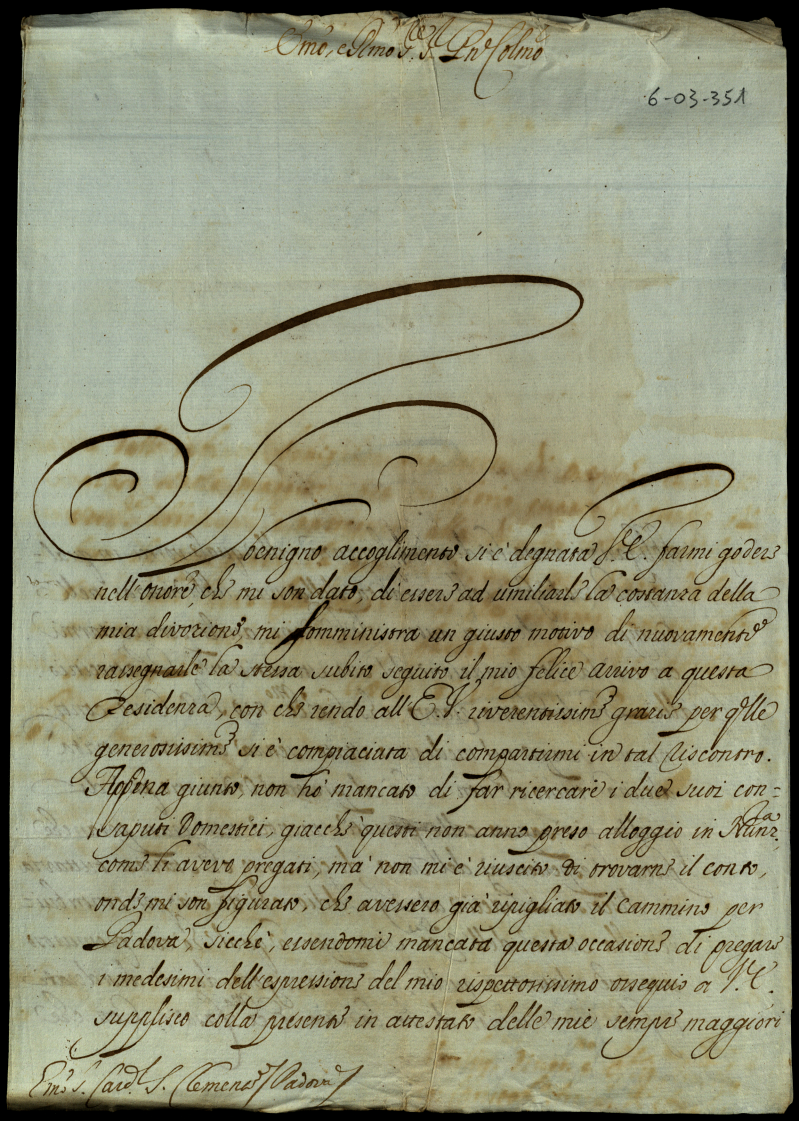 Emo, e Rmo Sig.r Sig.r Pne Colmo
6-03-351
Il benigno accoglimento si è degnata V.E. farmi godere
nell'onore, che mi son dato, di essere ad umiliarle la costanza della
mia divozione, mi somministra un giusto motivo di nuovamente
rassegnarle la stessa subito seguito il mio felice arrivo a questa
Residenza, con che rendo all'E.V. riverentissime grazie per qlle
generosissime si è compiaciuta di compartirmi in tal riscontro.
Appena giunto, non hò mancato di far ricercare i due suoi con=
saputi Domestici, giacchè questi non anno preso alloggio in Nunz.ra
come li avevo pregati, mà non mi è riuscito di trovarne il conto,
onde mi son figurato, che avessero già ripigliato il cammino per
Padova, sicchè, essendomi mancata questa occasione di pregare
i medesimi dell'espressione del mio rispettosissimo ossequio a V.E.
supplisco colla presente in attestato delle mie sempre maggiori
Emo S. Card.l S. Clemente / Padova /